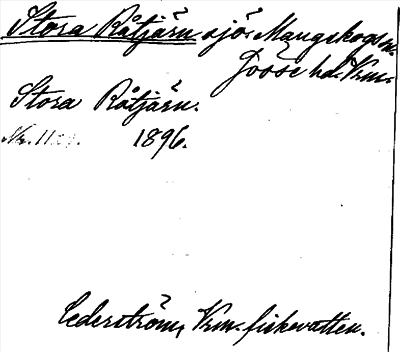 Stora Råtjärn sjö i Mangskogs sn.
Jösse hd. Vrm.
Stora Råtjärn.
1896.
Cederström, Vrm. fiskevatten.